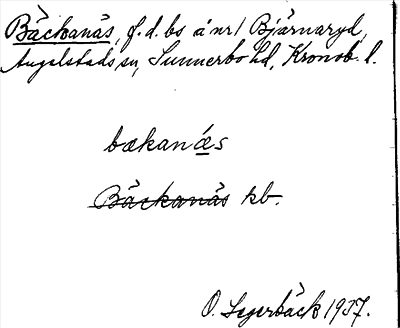 Bäckanäs, f.d. bs å nr 1 Bjärnaryd,
Angelstads sn, Sunnerbo hd, Kronob. l.
bækanǽs
Bäckanäs kb.
O. Segerbäck 1937.